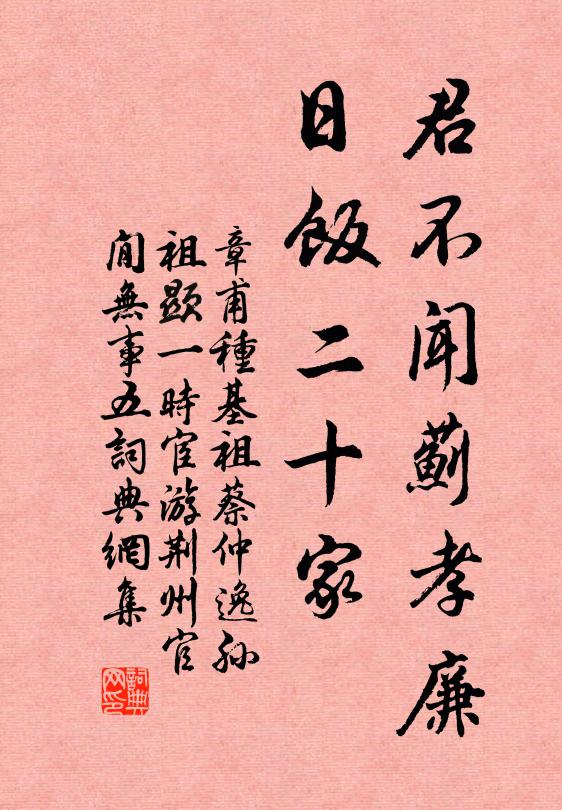 君不闻薊孝廉
日飯二十家
章甫種基祖蔡仲逸孙
祖顯一時宦游荆州官
閒無事五詞典網集
詞典网印